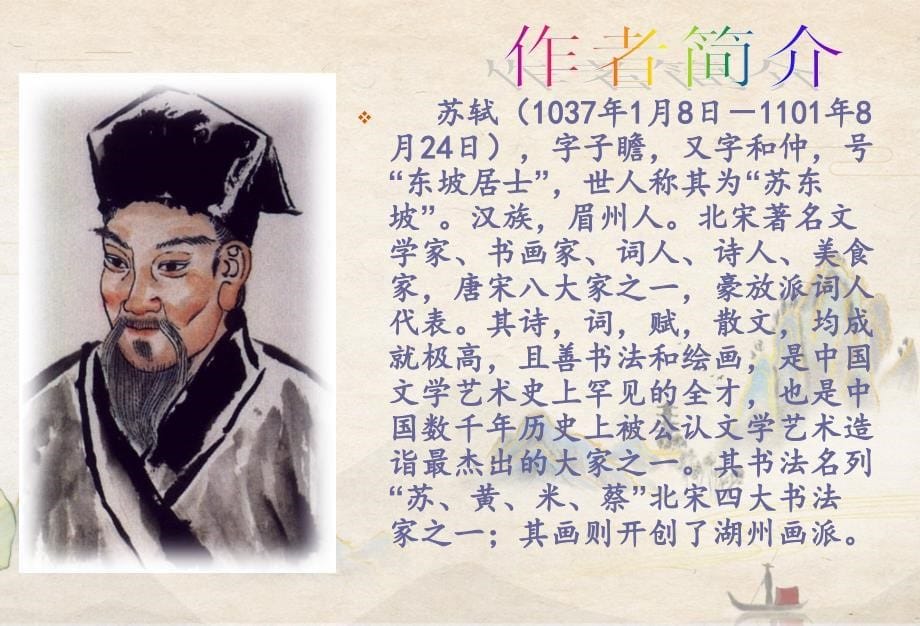 作者简介
❖ 苏轼（1037年1月8日－1101年8
月24日），字子瞻，又字和仲，号
“东坡居士”，世人称其为“苏东
坡”。汉族，眉州人。北宋著名文
学家、书画家、词人、诗人、美食
家，唐宋八大家之一，豪放派词人
代表。其诗，词，赋，散文，均成
就极高，且善书法和绘画，是中国
文学艺术史上罕见的全才，也是中
国数千年历史上被公认文学艺术造
诣最杰出的大家之一。其书法名列
“苏、黄、米、蔡”北宋四大书法
家之一；其画则开创了湖州画派。